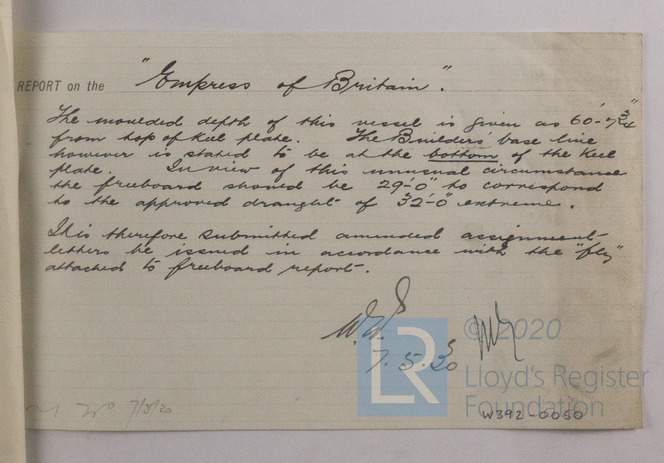 REPORT on the "Empress of Britain".
The moulded depth of this vessel is given as 60'-7¾"
from top of keel plate. The Builders' base line
however is stated to be at the bottom of the keel
plate. In view of this unusual circumstance
the freeboard should be 29'-0" to correspond
to the approved draught of 32'-0" extreme.
It is therefore submitted amended assignment
letters be issued in accordance with the "fly"
attached to freeboard report.
7.5.30
© 2020
LR
Lloyd's Register
Foundation
W392-0050
7/5/30